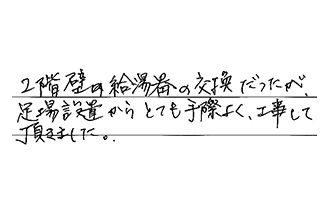 2階壁の給湯器の交換だったが、
足場設置からとても手際よく、工事して
頂きました。